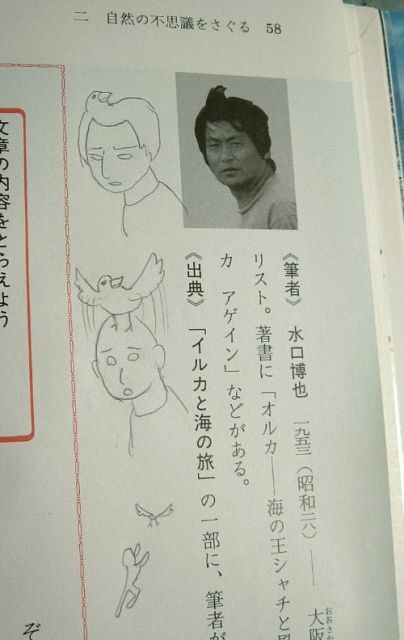 二 自然の不思議をさぐる 58
《筆者》 水口博也 一九五三(昭和二八)── 大阪
おおさか
リスト。著書に「オルカ──海の王シャチと
カ アゲイン」などがある。
《出典》 「イルカと海の旅」の一部に、筆者が
文章の内容をとらえよう
ぞ